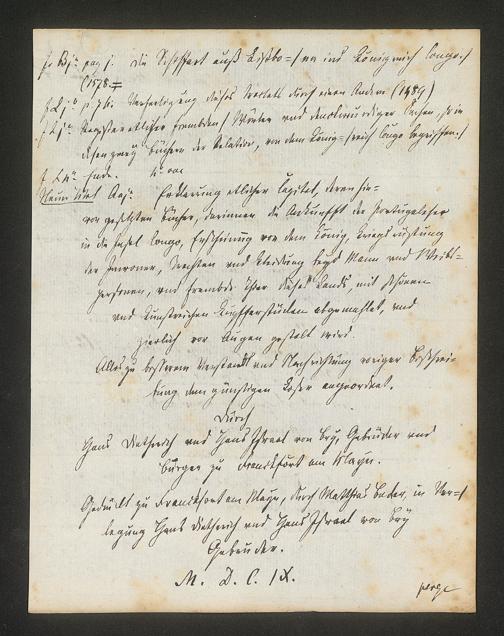 f. Bjᵃ pag j. die Schiffart auß Lißbo=/na ins Königreich Congo./
(1578.
f. Ljᵇ p. 76. Verfertigung dieses Tractats durch einen Andern (1589)
Register etlicher frembden/ Wörter und denckwürdiger Sachen, so in
diesen zwey Büchern der Relation, von dem König=/reich Congo begriffen./
Ende.
Neuer titel Aajᵃ. Erklärung etlicher Capitel, deren hie=
vor gesetzten Bücher, darinnen die Ankunfft der Portugaleser
in die Insel Congo, Erscheinung vor dem König, Kriegsrüstung
der Inwoner, Trachten und Kleidung beyd Mann und Weibs=
personen, und frembde Thier dieses Lands, mit schönen
und kunstreichen Kupfferstücken abgemahlet, und
zierlich vor Augen gestelt wird.
Alles zu besserem Verstandt und Nachrichtung voriger Beschrei=
bung dem günstigen Leser angeordnet.
Durch
Hans Dietherich und Hans Israel von Bry, Gebrüder und
Bürger zu Franckfort am Mayn.
Gedruckt zu Franckfort am Mayn, durch Matthias Becker, in Ver=/
legung Hans Dietherich und Hans Israel von Bry
Gebrüder.
M. D. C. IX.
perge